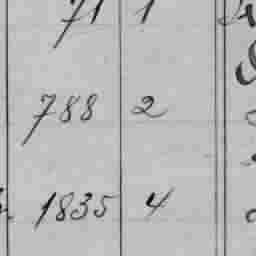 71 1
788 2
1835 4